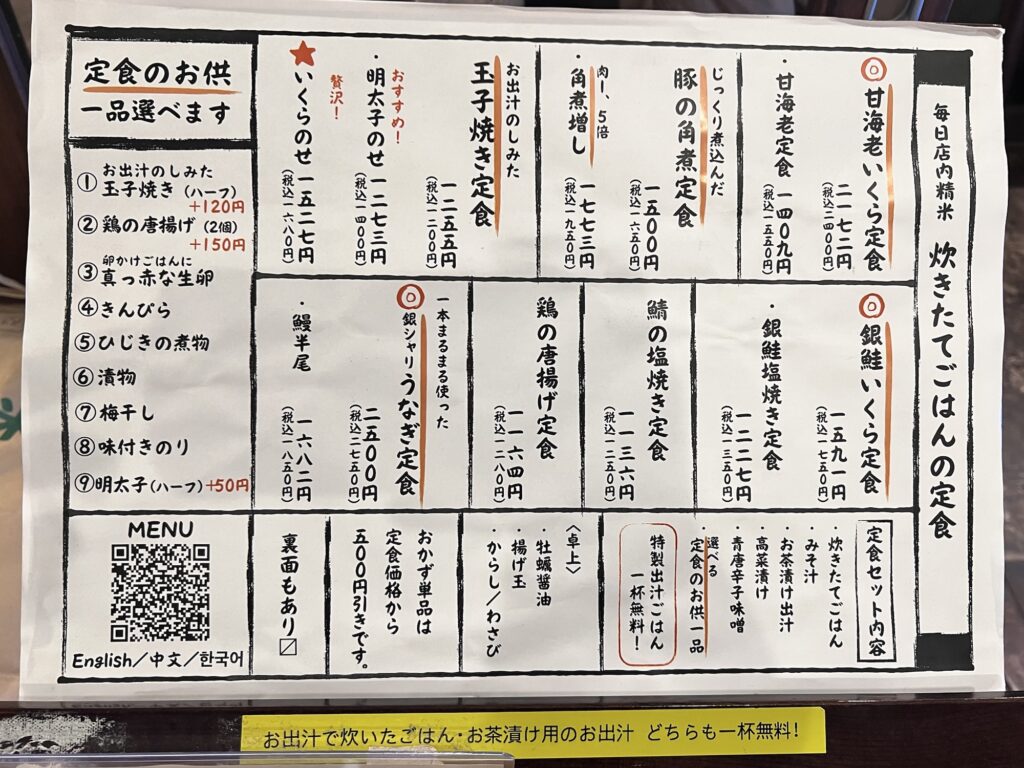 毎日店内精米 炊きたてごはんの定食
◎甘海老いくら定食
二一八二円
(税込二四〇〇円)
・甘海老定食
一四〇九円
(税込一五五〇円)
じっくり煮込んだ
豚の角煮定食
一五〇〇円
(税込一六五〇円)
肉1、5倍
・角煮増し
一七七三円
(税込一九五〇円)
お出汁のしみた
玉子焼き定食
一二五五円
(税込一二〇〇円)
おすすめ!
・明太子のせ
一二七三円
(税込一四〇〇円)
贅沢!
★・いくらのせ
一五二七円
(税込一六八〇円)
◎銀鮭いくら定食
一五九一円
(税込一七五〇円)
・銀鮭塩焼き定食
一二二七円
(税込一三五〇円)
鯖の塩焼き定食
一一三六円
(税込一二五〇円)
鶏の唐揚げ定食
一一六四円
(税込一二八〇円)
一本まるまる使った
◎銀シャリうなぎ定食
二五〇〇円
(税込二七五〇円)
・鰻半尾
一六八二円
(税込一八五〇円)
定食セット内容
・炊きたてごはん
・みそ汁
・お茶漬け出汁
・高菜漬け
・青唐辛子味噌
・選べる
定食のお供一品
特製出汁ごはん
一杯無料!
〈卓上〉
・牡蠣醤油
・揚げ玉
・からし/わさび
おかず単品は
定食価格から
五〇〇円引きです。
裏面もあり
定食のお供
一品選べます
①お出汁のしみた
玉子焼き(ハーフ)
+120円
②鶏の唐揚げ(2個)
+150円
③卵かけごはんに
真っ赤な生卵
④きんぴら
⑤ひじきの煮物
⑥漬物
⑦梅干し
⑧味付きのり
⑨明太子(ハーフ)+50円
MENU
English/中文/한국어
お出汁で炊いたごはん・お茶漬け用のお出汁 どちらも一杯無料!